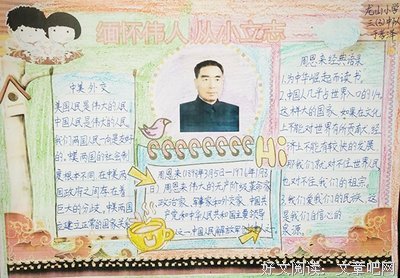 缅怀伟人 从小立志
龙山小学
中美外交
美国人民是伟大的人民,
中国人民是伟大的人民。
我们两国人民一向是友好
的,
两国的社会制
度根本不同,在中美两
国政府之间存在着
巨大的分歧,
中美两国
建立正常的国家关
Hi
周恩来1898年3月5日-1976年1月8
日),周恩来伟大的无产阶级革命家
政治家、军事家和外交家,中国共
产党和中华人民共和国主要领导
人之一中国人民解放军
周恩来经典语录
1.为中华崛起而读书。
2.中国人几乎占世界人口的1/4,
这样大的国家,如果在文化
上不能对世界有所贡献,经
济上不能有较快的发展,
那我们就对不住世界人民
也对不住我们的祖宗。
3.我们爱我们的民族,这
是我们自信心的
泉源。
好文阅读:文章吧网